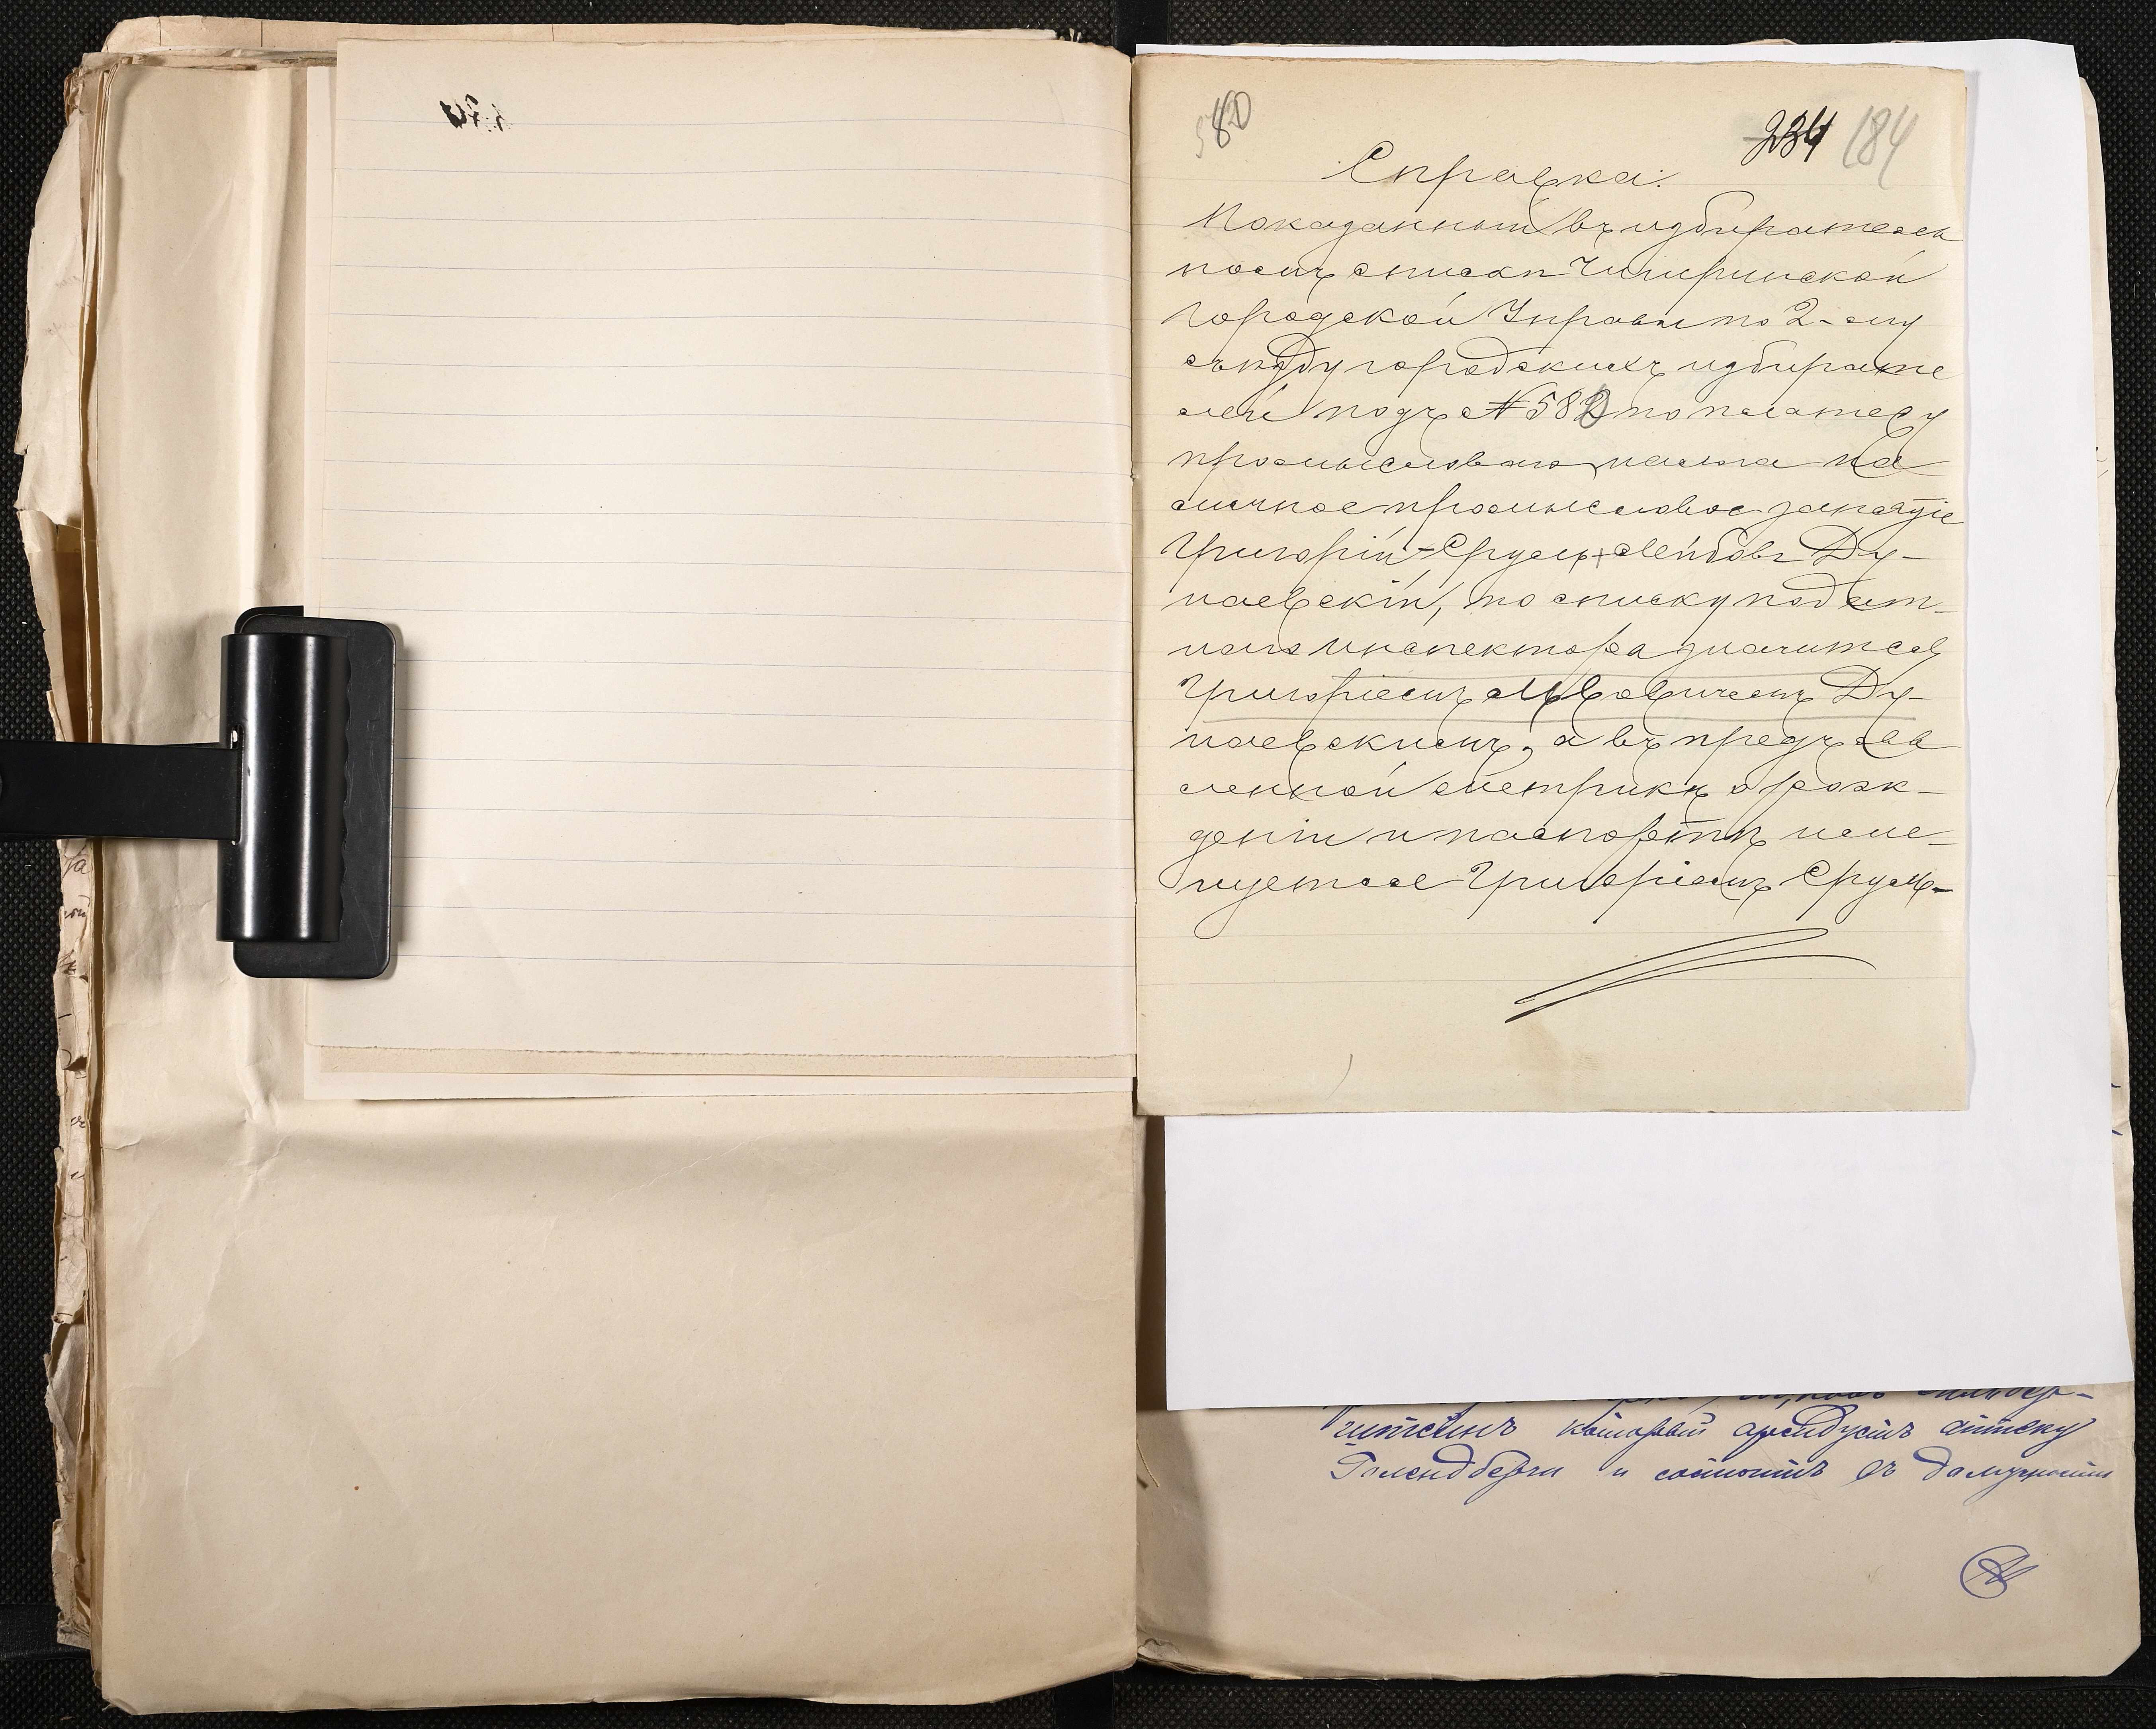 580
234 184
Справка.
Показанный въ избиратель
номъ списке Чигиринской
Городской Управы по 2-му
съезду городскихъ избирате
лей подъ № 580 по платежу
промысловаго налога на
личное промысловое занятіе
Григорій-Срулъ Лейбовъ Ду-
наевскій, по списку подат-
наго инспектора значится
Григоріемъ Львовичемъ Ду-
наевскимъ, а въ предъяв
ленной метрике о рож-
деніи и паспорте име-
нуется Григоріемъ Сруль-
который арендуетъ аптеку
и состоитъ въ должности